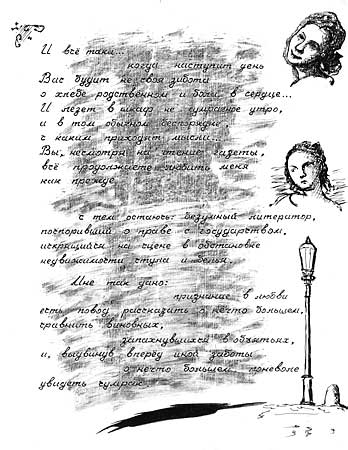 И всё таки...
когда наступит день
Вас будит не своя забота
о хлебе родственном и боли в сердце...
И лезет в шкар не сумрачное утро,
и в том обычном беспорядке
с каким приходят мысли
Вы, несмотря на чтение газеты,
всё продолжаете любить меня
как прежде
с тем остаюсь: безумный литератор,
поспоривший о праве с государством,
искрящийся на сцене в обстановке
недвижимости стула и белья.
Мне так дано:
признание в любви
есть повод рассказать о нечто большем,
сравнить виновных,
запахнувшихся в объятьях,
и, выдвинув вперёд иной заботы
о нечто большем поневоле
увидеть